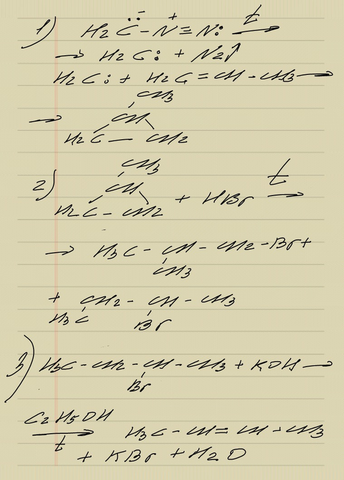 1) H2C̈⁻ - N⁺ ≡ N: t→
→ H2C: + N2↑
H2C: + H2C = CH - CH3 →
CH3
→ CH
H2C — CH2
2) CH3
CH
H2C - CH2 + HBr t→
→ H3C - CH - CH2 - Br +
CH3
+ CH2 - CH - CH3
H3C Br
3) H3C - CH2 - CH - CH3 + KOH →
Br
C2H5OH
→ t H3C - CH = CH - CH3
+ KBr + H2O